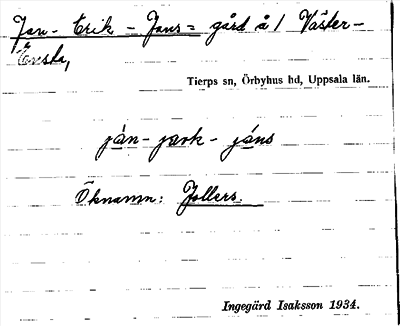 Jan- Erik - Jans = gård å 1 Väster-
Ensta,
Tierps sn, Örbyhus hd, Uppsala län.
ján- jærk - jáns
Öknamn: Jollers.
Ingegärd Isaksson 1934.